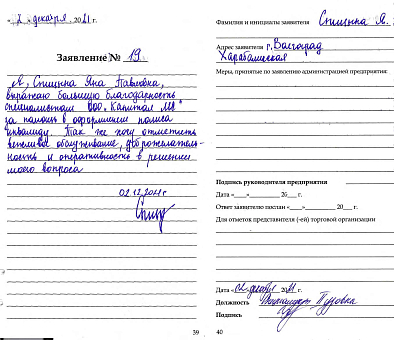 "2" декабря 2021 г.
Заявление № 19
Я, Спицына Яна Павловна,
выражаю большую благодарность
специалистам ООО "Капитал МВ"
за помощь в оформлении полиса
инвалиду. Так же хочу отметить
вежливое обслуживание, доброжелатель-
ность и оперативность в решении
моего вопроса
02.12.2021г
39
Фамилия и инициалы заявителя Спицына Я.
Адрес заявителя г. Волгоград
Харабалинская
Меры, принятые по заявлению администрацией предприятия:
Подпись руководителя предприятия
Дата «___»__________ 20___ г.
Ответ заявителю послан «___»__________ 20___ г.
Для отметок представителя (-ей) торговой организации
Дата «02» декабря 2021 г.
Должность
Подпись
40